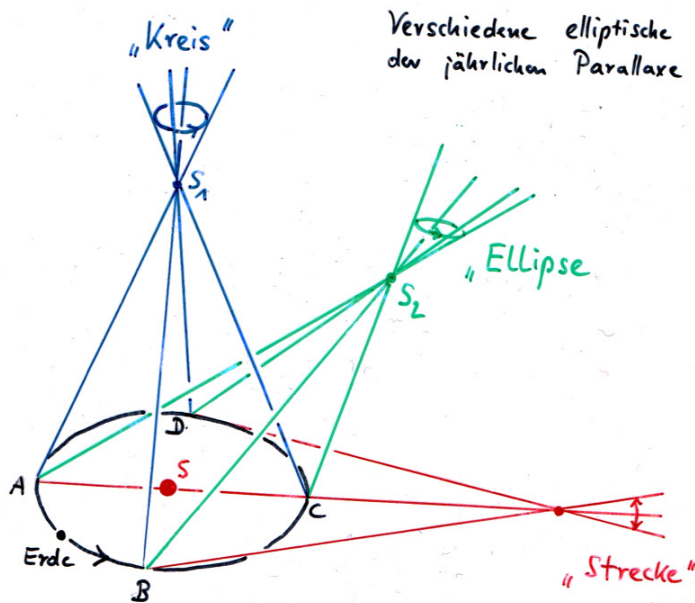 „Kreis“
Verschiedene elliptische
der jährlichen Parallaxe
S₁
„Ellipse
S₂
D
S
A
C
Erde
B
„Strecke“